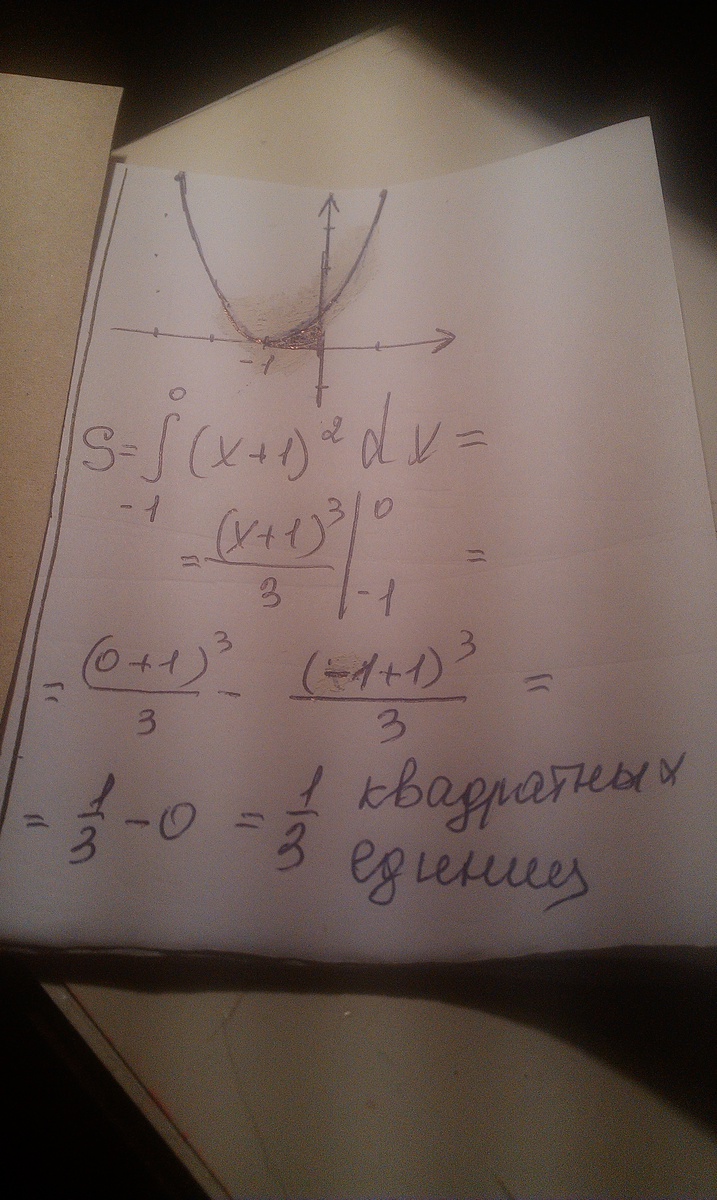 -1
S = ∫₋₁⁰ (x+1)² dx =
= (x+1)³/3 |₋₁⁰ =
= (0+1)³/3 - (-1+1)³/3 =
= 1/3 - 0 = 1/3 квадратных
единиц